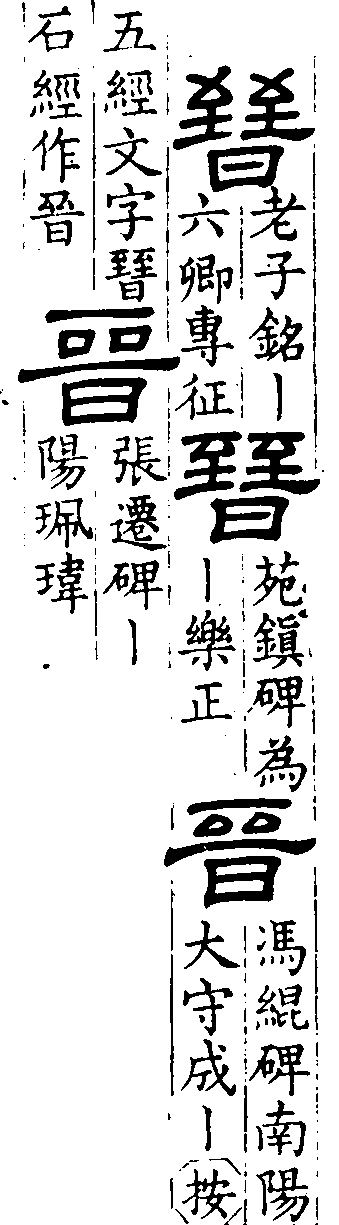 晉
老子銘丨
六卿專征
晉
苑鎮碑為
丨樂正
晋
馮緄碑南陽
大守成丨按
五經文字晉
石經作晋
晋
張遷碑丨
陽珮瑋